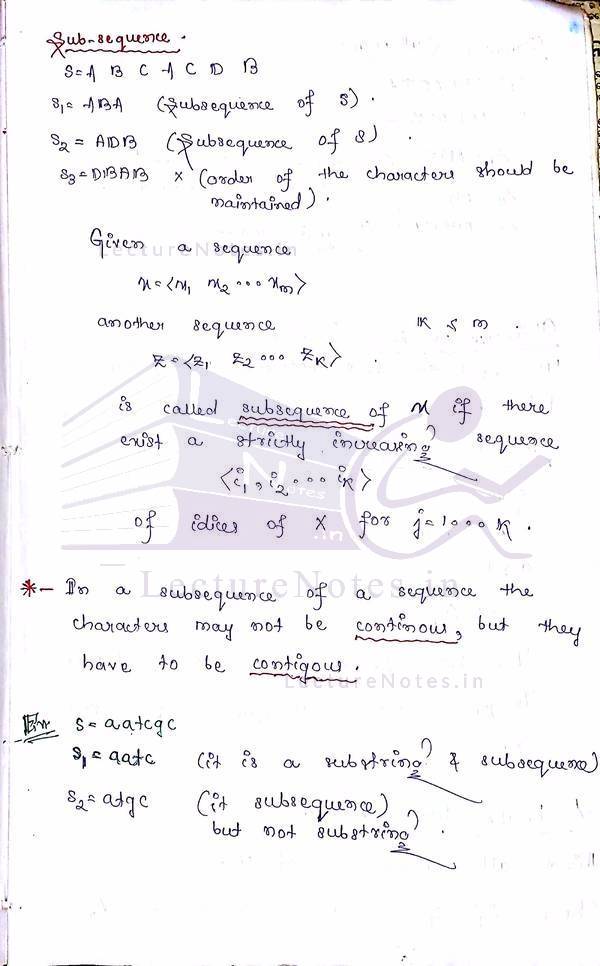 Sub-sequence.
S = A B C A C D B
S1 = ABA (Subsequence of S).
S2 = ADB (Subsequence of S).
S3 = DBAB × (order of the characters should be
maintained).
Given a sequence
LectureNotes.in
x = <x1 x2 ... xm>
another sequence K ≤ m.
Z = <Z1 Z2 ... ZK>.
is called subsequence of x if there
exist a strictly increasing sequence
<i1, i2 ... iK>
of idices of X for j=1...K.
LectureNotes.in
*- In a subsequence of a sequence the
characters may not be continous, but they
have to be contigous.
LectureNotes.in
Ex S = aatcgc
S1 = aatc (it is a substring & subsequence)
S2 = atgc (it subsequence)
but not substring.